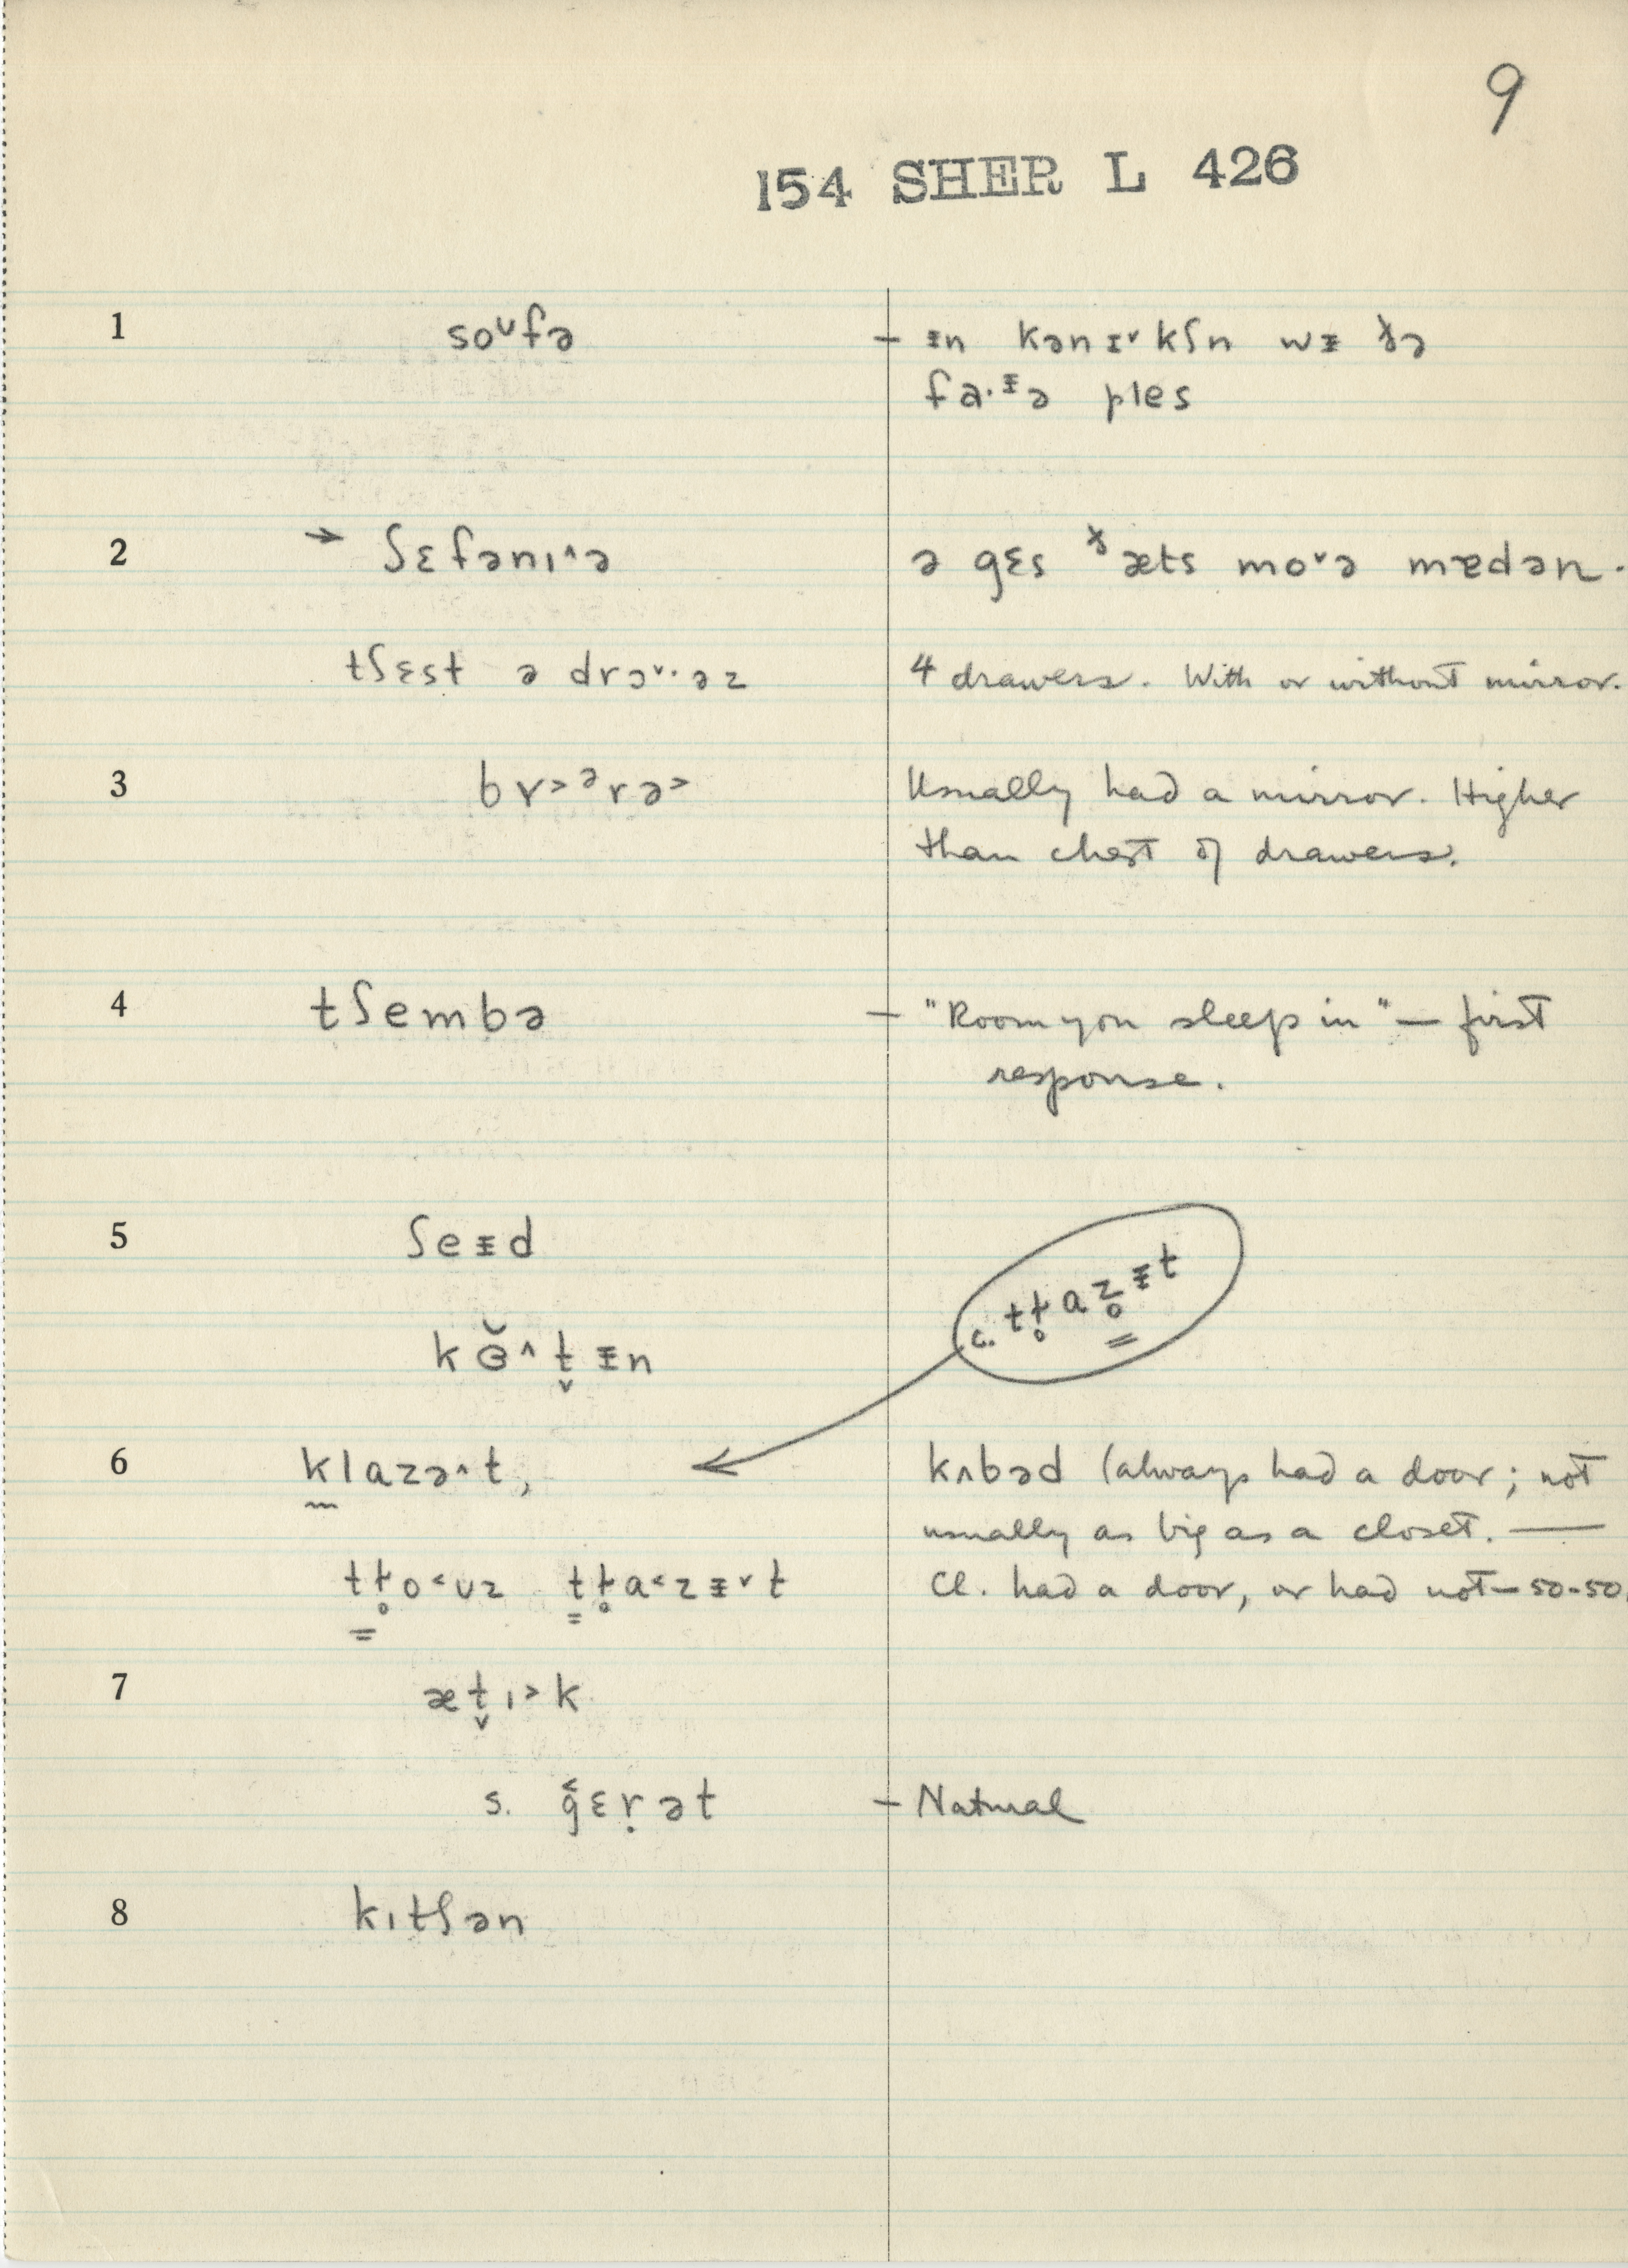 9
154 SHER L 426
1 so^ᴜfə – ᵻn kənɪ˅kʃn wᵻ ðə
fa·ᵻə ples
2 → ʃɛfənı˄ə ə gɛs ðæts mo˅ə mɐdən.
tʃɛst ə drɔ˅·əz 4 drawers. With or without mirror.
3 bɤ˃ərə˃ Usually had a mirror. Higher
than chest of drawers.
4 tʃembə – "Room you sleep in" — first
response.
5 ʃeᵻd
c. tɫ̥az̥ᵻt
kɵ̆˄t̬ᵻn
6 klazə˄t, kʌbəd (always had a door; not
usually as big as a closet. —
tɫ̥o˂ᴜz tɫ̥a˂zᵻ˅t Cl. had a door, or had not — 50-50.
7 æt̬ı˃k
s. g̑ɛṛət – Natural
8 kıtʃən